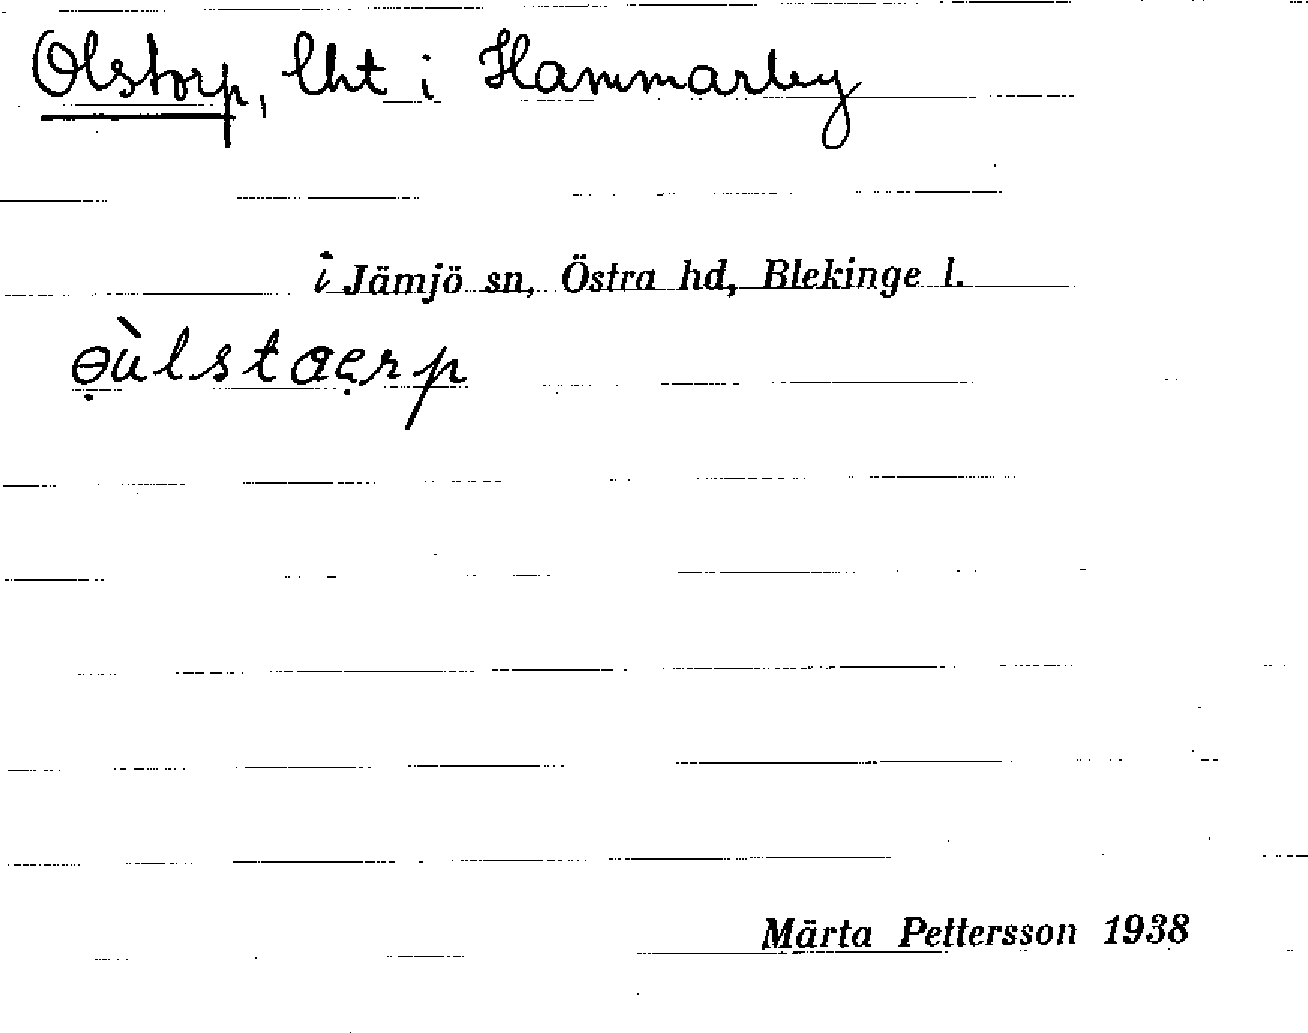 Olstorp, lht i Hammarby
i Jämjö sn, Östra hd, Blekinge l.
ɵ̣ùlstaẹrp
Märta Pettersson 1938